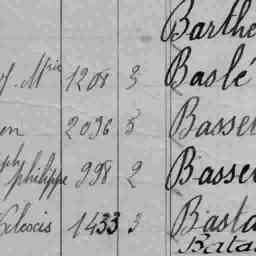 Barthe
f. Mie 1208 3 Baslé
en 2096 5 Basse
ph philippe 998 2 Basse
Alexis 1433 3 Basta
Bata